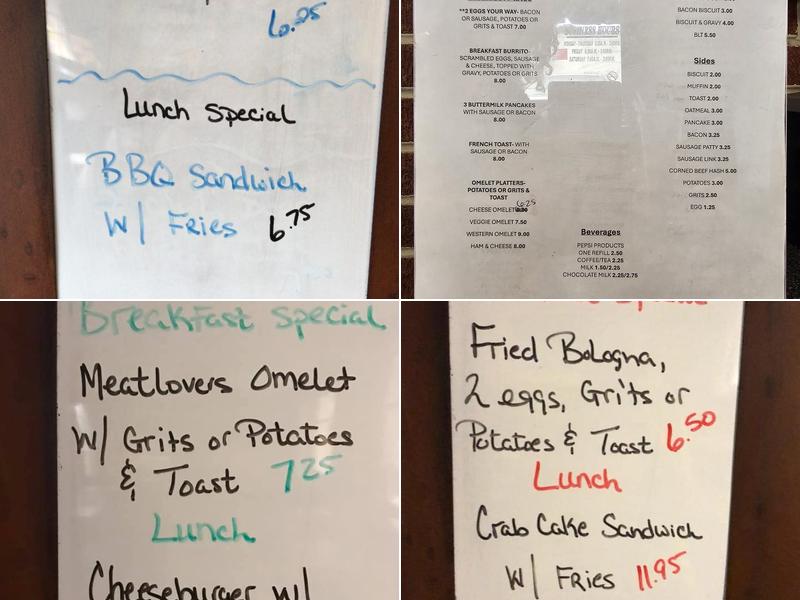 6.25
Lunch Special
BBQ Sandwich
W/ Fries 6.75
**2 EGGS YOUR WAY- BACON
OR SAUSAGE, POTATOES OR
GRITS & TOAST 7.00
BREAKFAST BURRITO-
SCRAMBLED EGGS, SAUSAGE
& CHEESE, TOPPED WITH
GRAVY, POTATOES OR GRITS
8.00
3 BUTTERMILK PANCAKES
WITH SAUSAGE OR BACON
8.00
FRENCH TOAST- WITH
SAUSAGE OR BACON
8.00
OMELET PLATTERS-
POTATOES OR GRITS &
TOAST
6.25
CHEESE OMELET
VEGGIE OMELET 7.50
WESTERN OMELET 9.00
HAM & CHEESE 8.00
BUSINESS HOURS
BACON BISCUIT 3.00
BISCUIT & GRAVY 4.00
BLT 5.50
Sides
BISCUIT 2.00
MUFFIN 2.00
TOAST 2.00
OATMEAL 3.00
PANCAKE 3.00
BACON 3.25
SAUSAGE PATTY 3.25
SAUSAGE LINK 3.25
CORNED BEEF HASH 5.00
POTATOES 3.00
GRITS 2.50
EGG 1.25
Beverages
PEPSI PRODUCTS
ONE REFILL 2.50
COFFEE/TEA 2.25
MILK 1.50/2.25
CHOCOLATE MILK 2.25/2.75
Breakfast Special
Meatlovers Omelet
W/ Grits or Potatoes
& Toast 7.25
Lunch
Cheeseburger w/
Fried Bologna,
2 eggs, Grits or
Potatoes & Toast 6.50
Lunch
Crab Cake Sandwich
W/ Fries 11.95